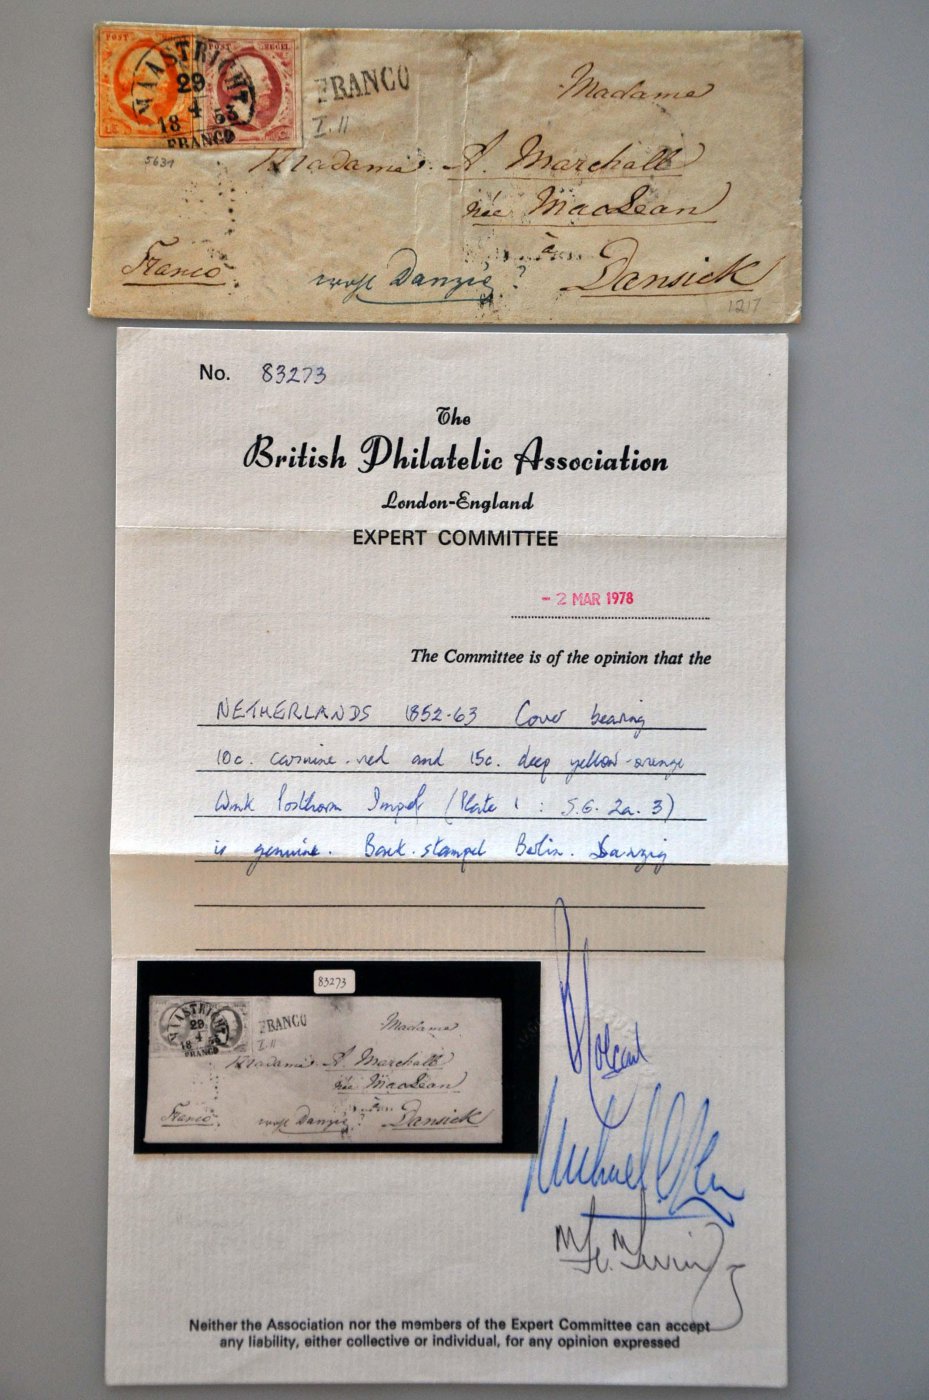 POST ZEGEL
MAASTRICHT
29
4
18 53
FRANCO
FRANCO
I.11
5631
Madame
Madame A. Marchall
née MacLean
à
Franco
Danzig ?
Dansick
1217
No. 83273
The
British Philatelic Association
London-England
EXPERT COMMITTEE
- 2 MAR 1978
The Committee is of the opinion that the
NETHERLANDS 1852-63 Cover bearing
10c. carmine-red and 15c. deep yellow-orange
Wmk Posthorn Imperf (Plate 1 : S.G. 2a. 3)
is genuine. Back-stamped Berlin. Danzig
83273
MAASTRICHT
29
4
18 53
FRANCO
FRANCO
I.11
Madame
Madame A. Marchall
née MacLean
à
Franco
Danzig ?
Dansick
Neither the Association nor the members of the Expert Committee can accept
any liability, either collective or individual, for any opinion expressed